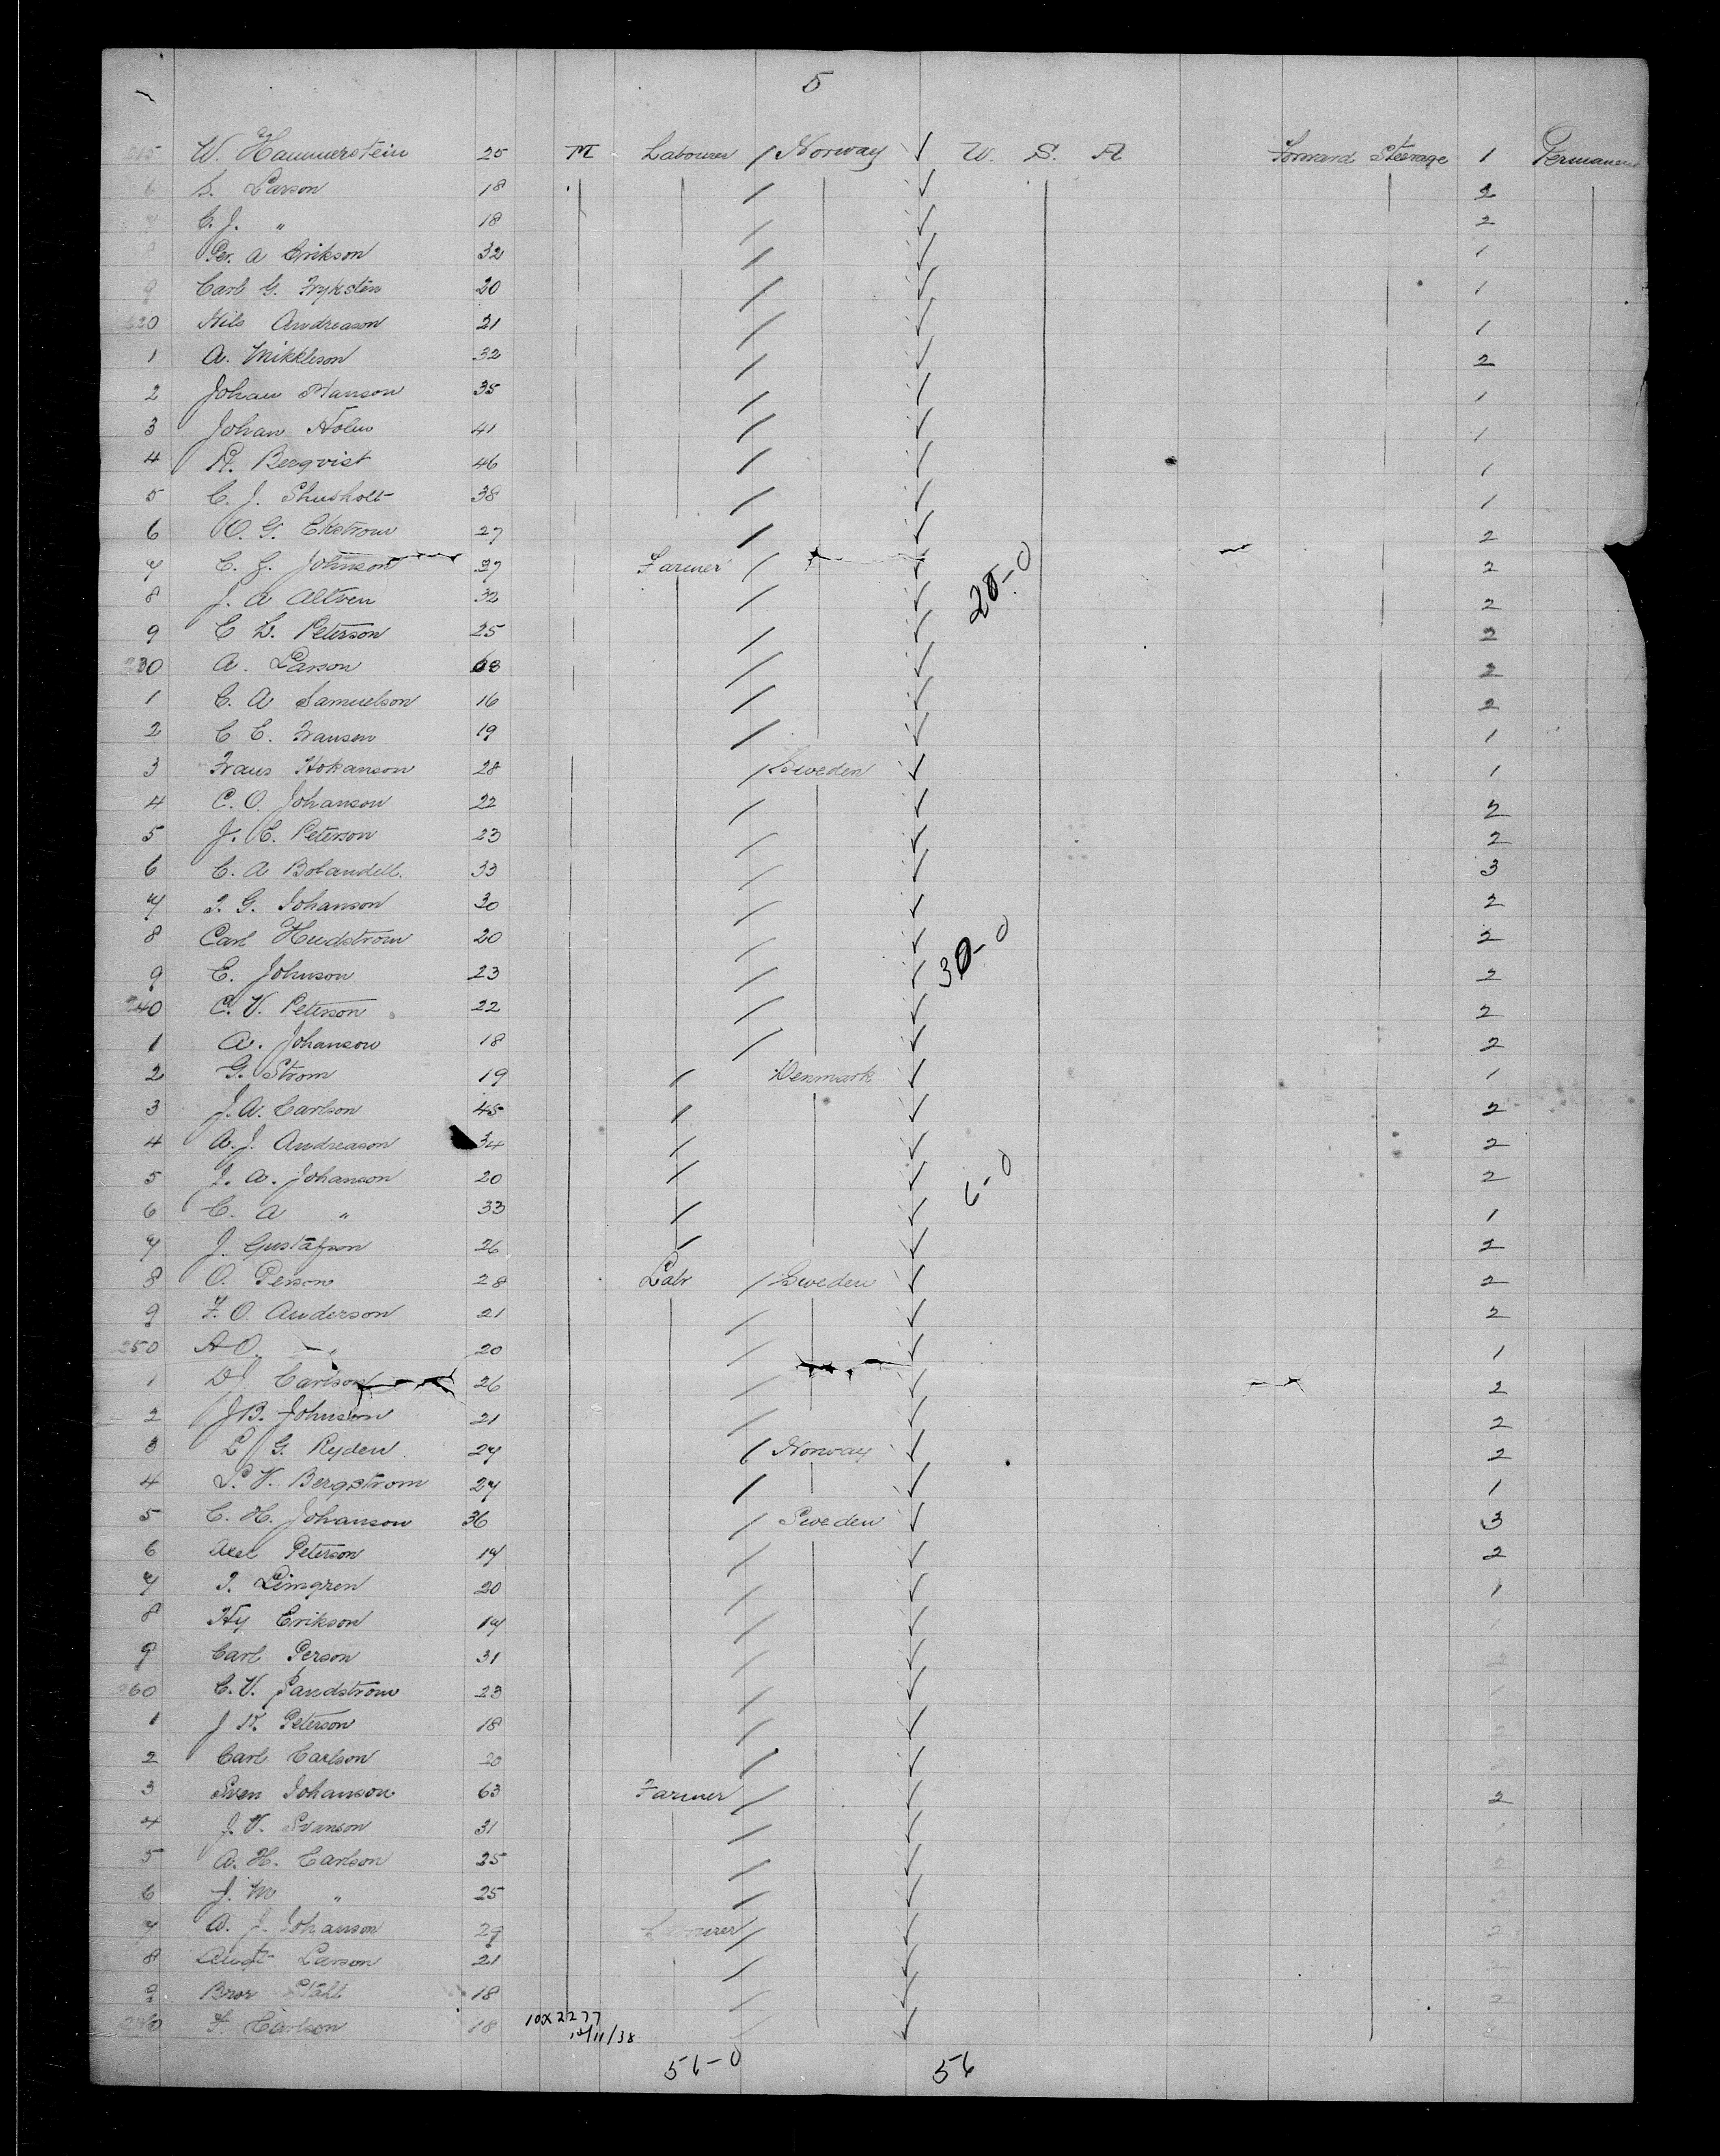 5
215 W. Hammerstein 25 M Labourer / Norway U. S. A Forward Steerage 1 Permanent
6 L. Larson 18 / 2
7 C. J. " 18 / 2
8 Per. A Erikson 32 / 1
9 Carl G. Frykstén 20 / 1
220 Nils Andreason 21 / 1
1 A. Mikkleson 32 / 2
2 Johan Hanson 35 / 1
3 Johan Holm 41 / 1
4 P. Berqvist 46 / 1
5 C. J. 38 / 1
6 O. G. Ekstrom 27 / 2
7 C. J. Johnson 37 Farmer / 2
8 J. A 32 / 2
20-0
9 C L. Peterson 25 / 2
230 A. Larson 68 / 2
1 C. A Samuelson 16 / 2
2 C E. Fransen 19 / 1
3 Frans Hokanson 28 / Sweden 1
4 C. O. Johanson 22 / 2
5 J. E. Peterson 23 / 2
6 C. A Bolandell. 33 / 3
7 J. G. Johanson 30 / 2
8 Carl Hudstrom 20 / 2
9 E. Johnson 23 / 30-0 2
240 C. V. Peterson 22 / 2
1 A. Johanson 18 / 2
2 G. Strom 19 / Denmark 1
3 J. A. Carlson 45 / 2
4 A. J. Andreason 34 / 2
5 J. A. Johanson 20 / 6-0 2
6 C. A " 33 / 1
7 J. Gustafson 26 / 2
8 O. Person 28 Labr / Sweden 2
9 F. O. Anderson 21 / 2
250 A O. " 20 / 1
1 D J Carlson 26 / 2
2 J B. Johnson 21 / 2
3 L G. Ryden 27 / Norway 2
4 L. V. Bergstrom 27 / 1
5 C. H. Johanson 36 / Sweden 3
6 Axel Peterson 17 / 2
7 J. Limgren 20 / 1
8 Hy Erikson 17 / 1
9 Carl Person 31 / 2
260 C. V. Sandstrom 23 / 1
1 J K. Peterson 18 / 2
2 Carl Carlson 20 / 2
3 Sven Johanson 63 Farmer / 2
4 J. V. Svanson 31 / 1
5 A. H. Carlson 25 / 2
6 J. M " 25 / 2
7 A. J. Johanson 29 Labourer / 2
8 Augt Larson 21 / 2
9 Bror Stahl 18 / 2
270 F. Carlson 18 /
10X2277
12/11/38
56-0 56